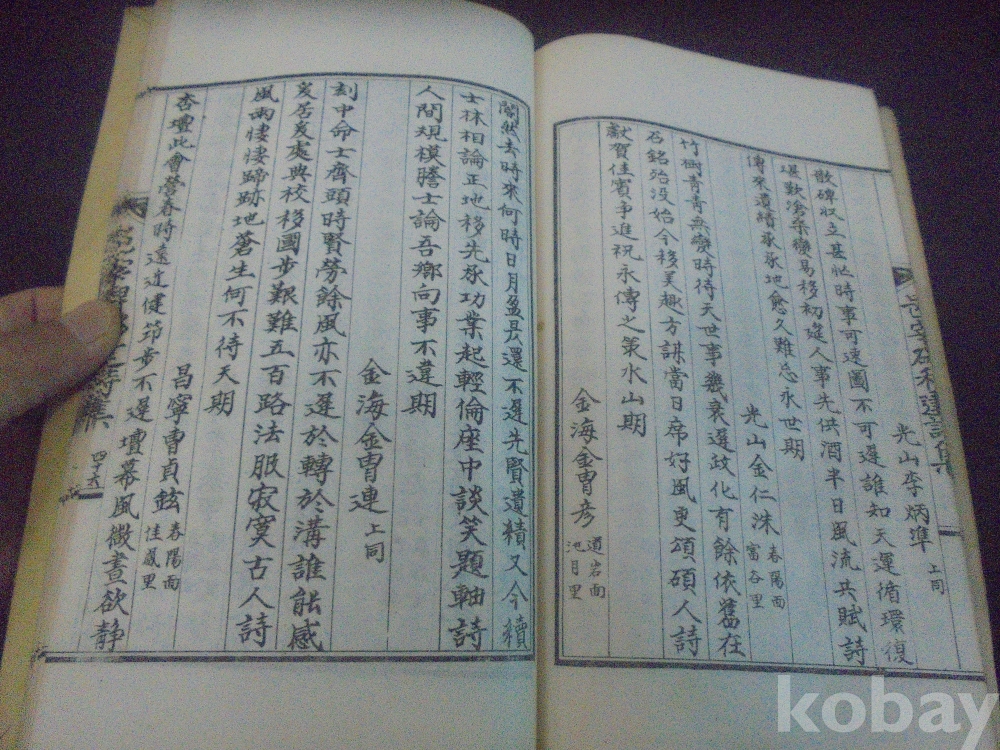 光山李炳準 上同
誰知天運循環復
散碑役立甚忙時事可速圖不可遲
堪歎滄桑變易移初筵人事先供酒半日風流共賦詩
傳來遺績承承地愈久難忘永世期
光山金仁洙 春陽面 富谷里
竹樹青青無變時待天世事幾衰遲政化有餘依舊在
石銘殆没始今移美趣方謀當日席好風更頌碩人詩
獻賀佳賓爭進祝永傳之策水山期
金海金胄彦 道岩面 池月里
闇然去時來何時日月盈昃還不遲先賢遺績又今續
士林相論正地移先承功業起輕倫座中談笑題軸詩
人間規模騰士論吾鄉向事不違期
金海金胄連 上同
刻中命士齊頭時賢勞餘風亦不遲於轉於溝誰能感
爰居爰處典校移國步艱難五百路法服寂寞古人詩
風雨悽悽蹄跡地蒼生何不待天期
昌寧曺貞鉉 春陽面 佳蔵里
杏壇此會鶯春時遠近健笻步不遲壇幕風微晝欲静
四十六
kobay